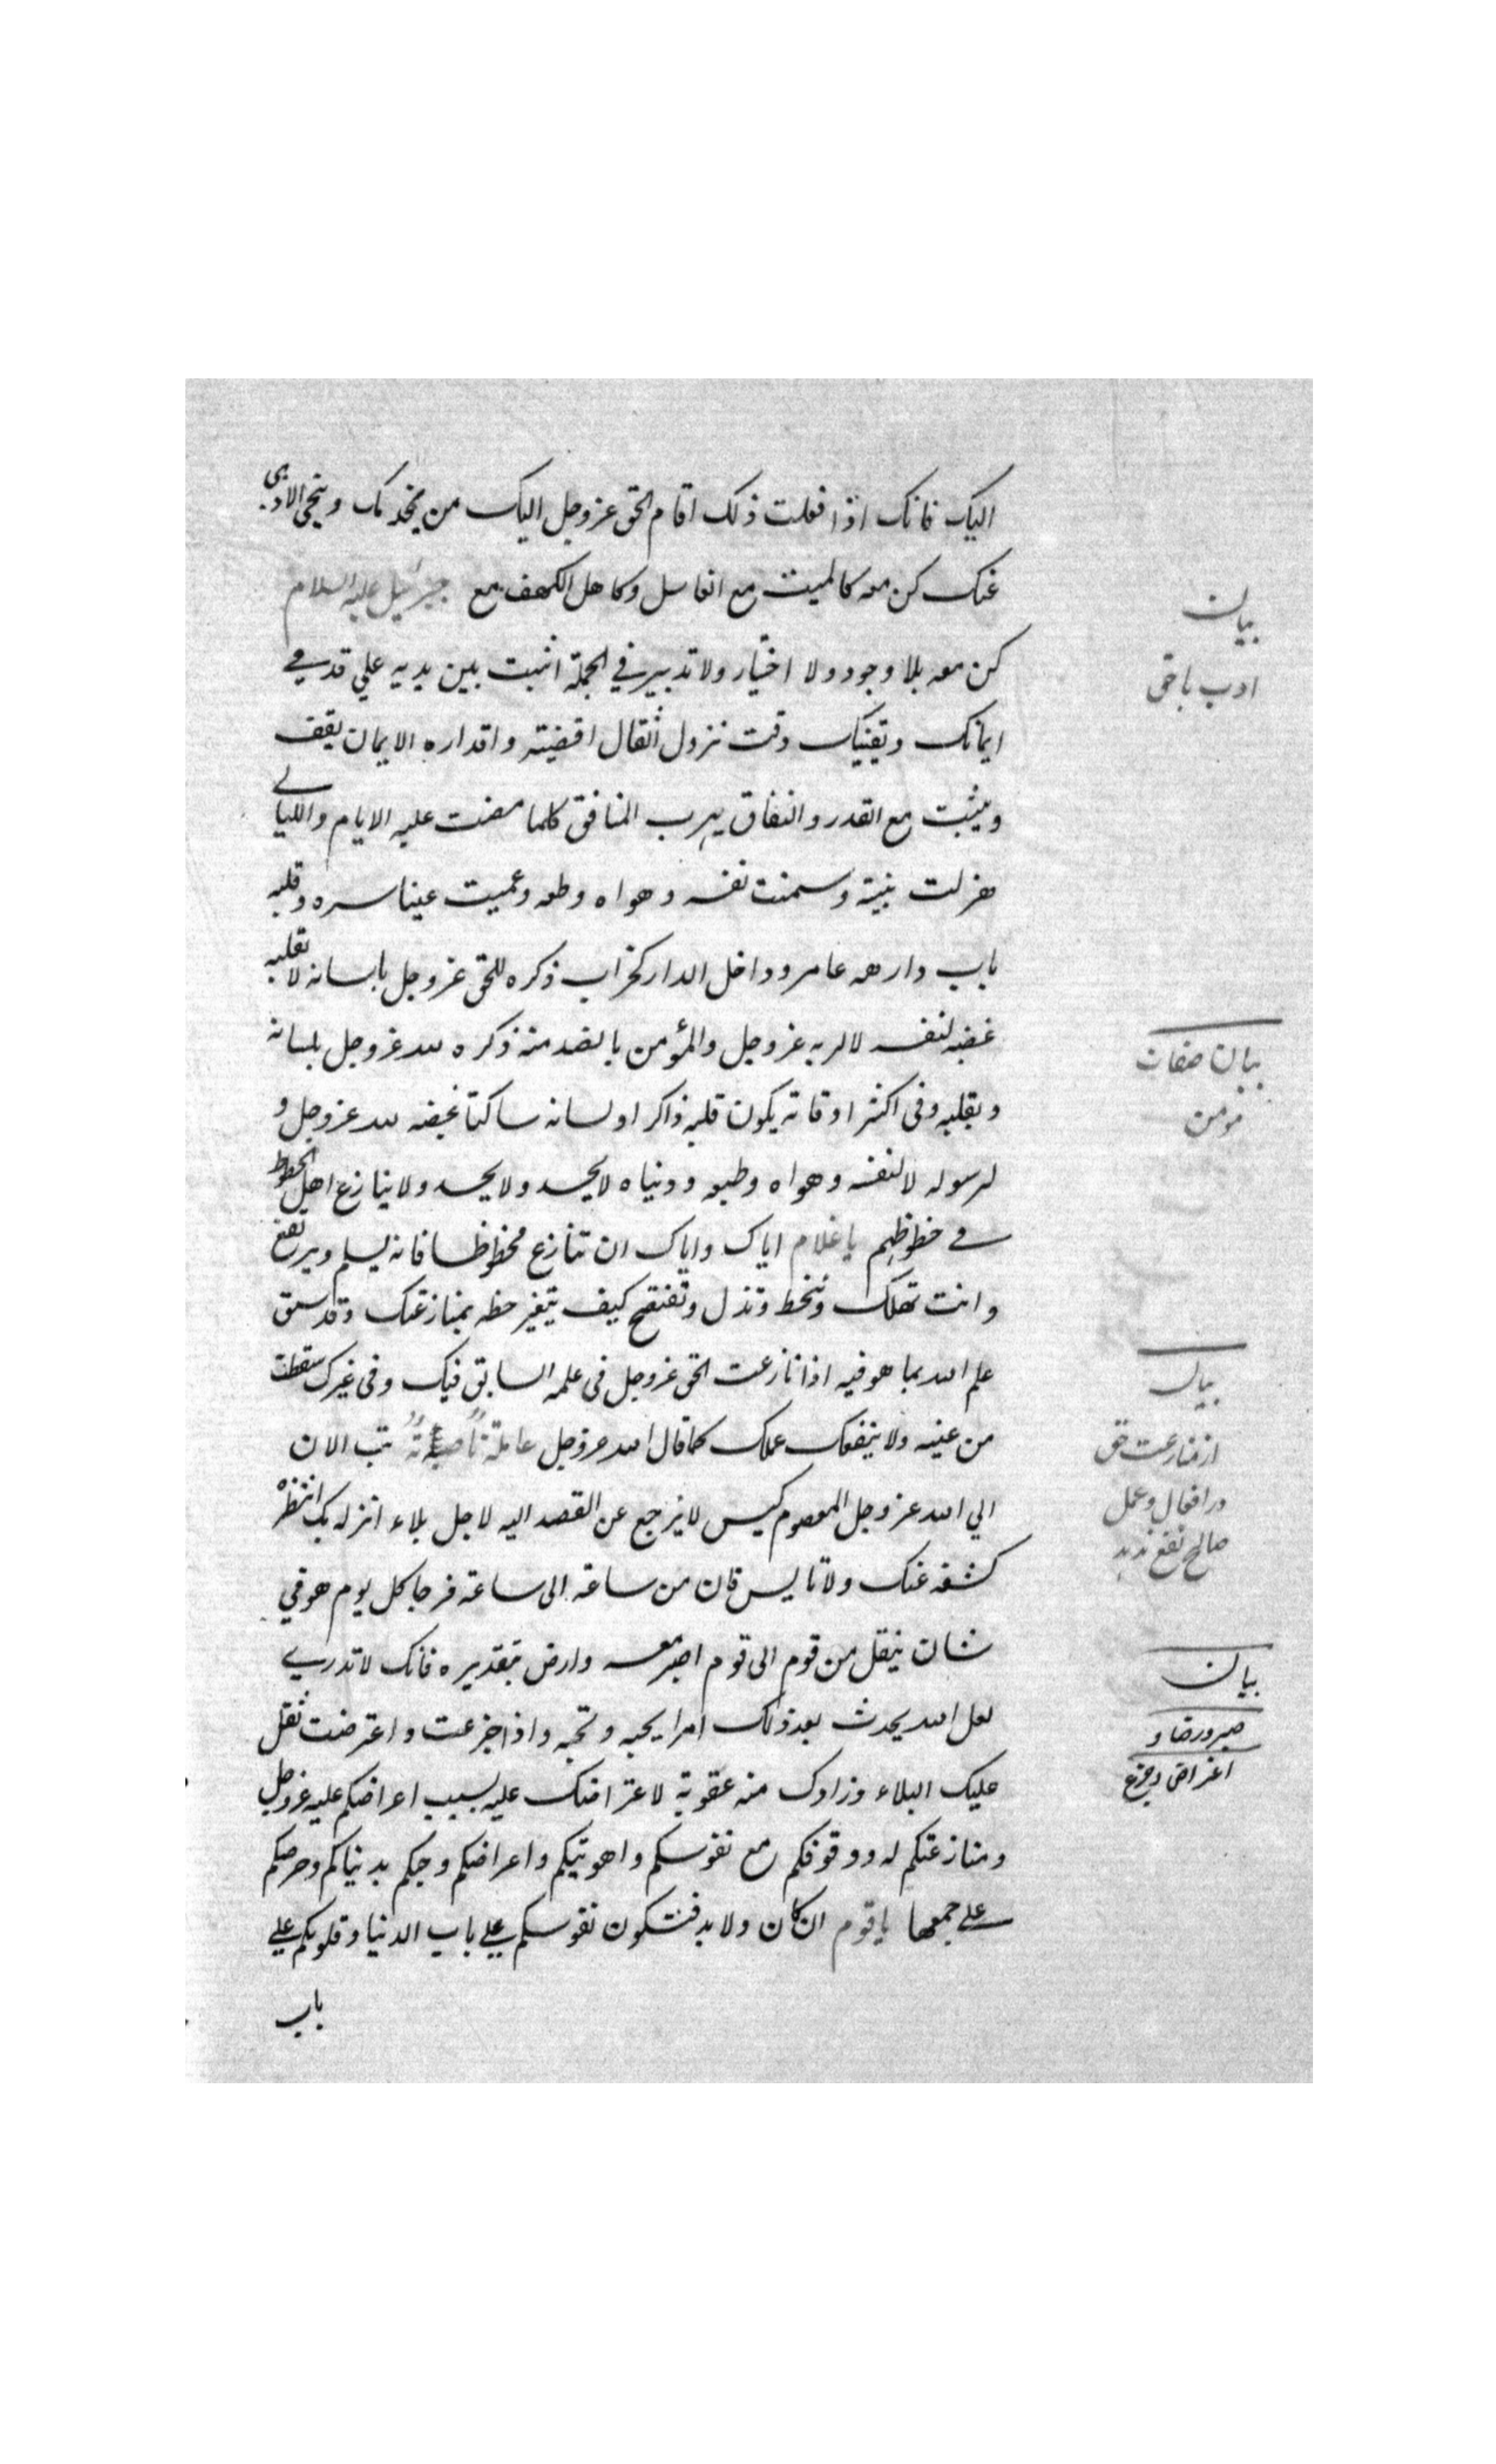 اليك فانك اذا فعلت ذلك اقام الحق عزوجل اليك من يخدمك وينحي الاذى
عنك كن معه كالميت مع الغاسل وكاهل الكهف مع جبرئيل عليه السلام
كن معه بلا وجود ولا اختيار ولا تدبير في الجملة اثبت بين يديه علي قدمي
ايمانك ويقينك وقت نزول اثقال اقضيته واقداره الايمان يقف
ويثبت مع القدر والنفاق يهرب المنافق كلما مضت عليه الايام والليالي
هزلت بنيته وسمنت نفسه وهواه وطبعه وعميت عينا سره وقلبه
باب داره عامر وداخل الدار كخراب ذكره للحق عزوجل بلسانه لا بقلبه
غضبه لنفسه لا لربه عزوجل والمؤمن بالضد منه ذكره لله عزوجل بلسانه
وبقلبه وفى اكثر اوقاته يكون قلبه ذاكرا ولسانه ساكتا غضبه لله عزوجل و
لرسوله لا لنفسه وهواه وطبعه ودنياه لا يحسد ولا يحسد ولا ينازع اهل الحظوظ
في حظوظهم يا غلام اياك واياك ان تنازع محظوظا فانه يسلم ويرتفع
وانت تهلك وتنحط وتذل وتفتضح كيف يتغير حظه بمنازعتك وقد سبق
علم الله بما هو فيه اذا نازعت الحق عزوجل فى علمه السابق فيك وفى غيرك سقطت
من عينه ولا ينفعك عملك كما قال الله عزوجل عاملة ناصبة تب الان
الي الله عزوجل المعصوم كيس لا يرجع عن القصد اليه لاجل بلاء انزله بك انتظر
كشفه عنك ولا تايس فان من ساعة الى ساعة فرجا كل يوم هو في
شان ينقل من قوم الى قوم اصبر معه وارض بتقديره فانك لا تدري
لعل الله يحدث بعد ذلك امرا يحبه وتحبه واذا جزعت واعترضت ثقل
عليك البلاء وزادك منه عقوبة لاعتراضك عليه بسبب اعراضكم عليه عزوجل
ومنازعتكم له ووقوفكم مع نفوسكم واهويتكم واعراضكم وحبكم بدنياكم وحرصكم
علي جمعها يا قوم ان كان ولا بد فتكون نفوسكم علي باب الدنيا وقلوبكم علي
باب
بيان
ادب باحق
بيان صفات
مومن
بيان
از منازعت حق
در افعال وعمل
صالح نفع ندهد
بيان
صبر ورضا و
اعتراض وجزع